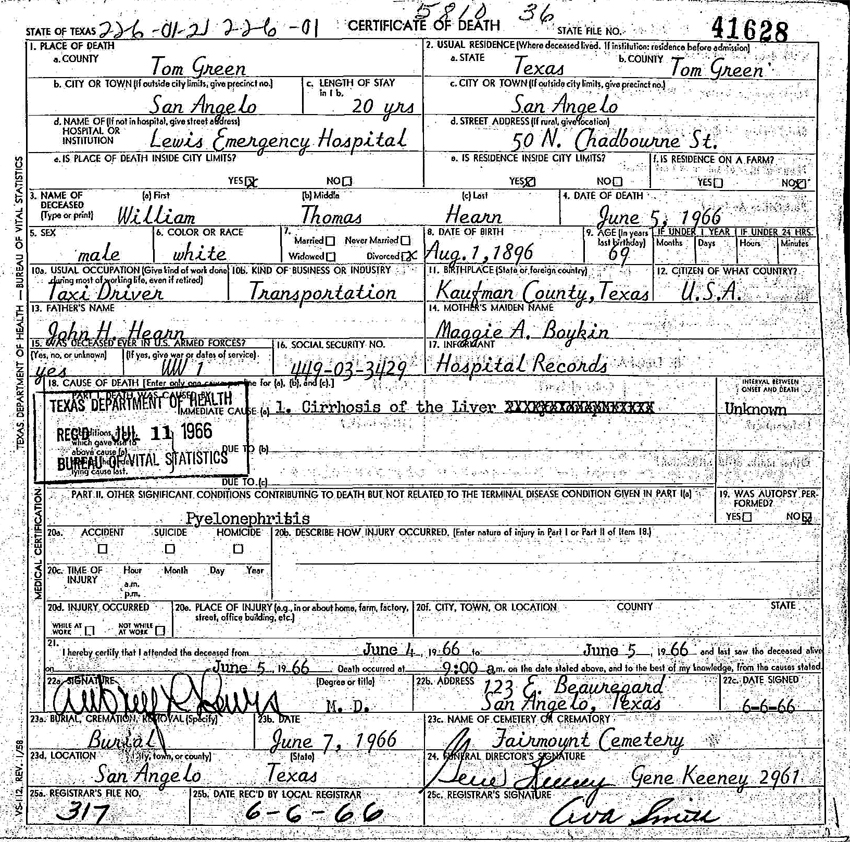 5810 36
STATE OF TEXAS 226-01-21 226-01 CERTIFICATE OF DEATH STATE FILE NO. 41628
1. PLACE OF DEATH 2. USUAL RESIDENCE (Where deceased lived. If institution: residence before admission)
a. COUNTY a. STATE b. COUNTY
Tom Green Texas Tom Green
b. CITY OR TOWN (If outside city limits, give precinct no.) c. LENGTH OF STAY in 1 b. c. CITY OR TOWN (If outside city limits, give precinct no.)
San Angelo 20 yrs San Angelo
d. NAME OF (If not in hospital, give street address) HOSPITAL OR INSTITUTION d. STREET ADDRESS (If rural, give location)
Lewis Emergency Hospital 50 N. Chadbourne St.
e. IS PLACE OF DEATH INSIDE CITY LIMITS? e. IS RESIDENCE INSIDE CITY LIMITS? f. IS RESIDENCE ON A FARM?
YES☒ NO☐ YES☒ NO☐ YES☐ NO☒
3. NAME OF DECEASED (Type or print) (a) First (b) Middle (c) Last 4. DATE OF DEATH
William Thomas Hearn June 5, 1966
5. SEX 6. COLOR OR RACE 7. Married☐ Never Married☐ Widowed☐ Divorced☒ 8. DATE OF BIRTH 9. AGE (In years last birthday) IF UNDER 1 YEAR IF UNDER 24 HRS.
Months Days Hours Minutes
male white Aug. 1, 1896 69
10a. USUAL OCCUPATION (Give kind of work done during most of working life, even if retired) 10b. KIND OF BUSINESS OR INDUSTRY 11. BIRTHPLACE (State or foreign country) 12. CITIZEN OF WHAT COUNTRY?
Taxi Driver Transportation Kaufman County, Texas U.S.A.
13. FATHER'S NAME 14. MOTHER'S MAIDEN NAME
John H. Hearn Maggie A. Boykin
15. WAS DECEASED EVER IN U.S. ARMED FORCES? 16. SOCIAL SECURITY NO. 17. INFORMANT
(Yes, no, or unknown) (If yes, give war or dates of service)
yes WW 1 449-03-3429 Hospital Records
18. CAUSE OF DEATH [Enter only one cause per line for (a), (b), and (c).] INTERVAL BETWEEN ONSET AND DEATH
PART I. DEATH WAS CAUSED BY:
IMMEDIATE CAUSE (a) 1. Cirrhosis of the Liver Unknown
TEXAS DEPARTMENT OF HEALTH
REC'D JUL 11 1966
BUREAU OF VITAL STATISTICS
Conditions, which gave rise to above cause (a) lying cause last.
DUE TO (b)
DUE TO (c)
PART II. OTHER SIGNIFICANT CONDITIONS CONTRIBUTING TO DEATH BUT NOT RELATED TO THE TERMINAL DISEASE CONDITION GIVEN IN PART I(a) 19. WAS AUTOPSY PERFORMED?
Pyelonephritis YES☐ NO☒
20a. ACCIDENT SUICIDE HOMICIDE 20b. DESCRIBE HOW INJURY OCCURRED. (Enter nature of injury in Part I or Part II of Item 18.)
☐ ☐ ☐
20c. TIME OF INJURY Hour Month Day Year
a.m.
p.m.
20d. INJURY OCCURRED 20e. PLACE OF INJURY (e.g., in or about home, farm, factory, street, office building, etc.) 20f. CITY, TOWN, OR LOCATION COUNTY STATE
WHILE AT WORK ☐ NOT WHILE AT WORK ☐
21. I hereby certify that I attended the deceased from June 4, 1966 to June 5, 1966 and last saw the deceased alive
on June 5 1966 Death occurred at 9:00 a.m. on the date stated above, and to the best of my knowledge, from the causes stated.
22a. SIGNATURE (Degree or title) 22b. ADDRESS 22c. DATE SIGNED
Lewis M. D. 123 E. Beauregard
San Angelo, Texas 6-6-66
23a. BURIAL, CREMATION, REMOVAL (Specify) 23b. DATE 23c. NAME OF CEMETERY OR CREMATORY
Burial June 7, 1966 Fairmount Cemetery
23d. LOCATION (City, town, or county) (State) 24. FUNERAL DIRECTOR'S SIGNATURE
San Angelo Texas Gene Keeney Gene Keeney 2961
25a. REGISTRAR'S FILE NO. 25b. DATE REC'D BY LOCAL REGISTRAR 25c. REGISTRAR'S SIGNATURE
317 6-6-66 Ava Smith
TEXAS DEPARTMENT OF HEALTH — BUREAU OF VITAL STATISTICS
MEDICAL CERTIFICATION
VS-112, REV. 1/58